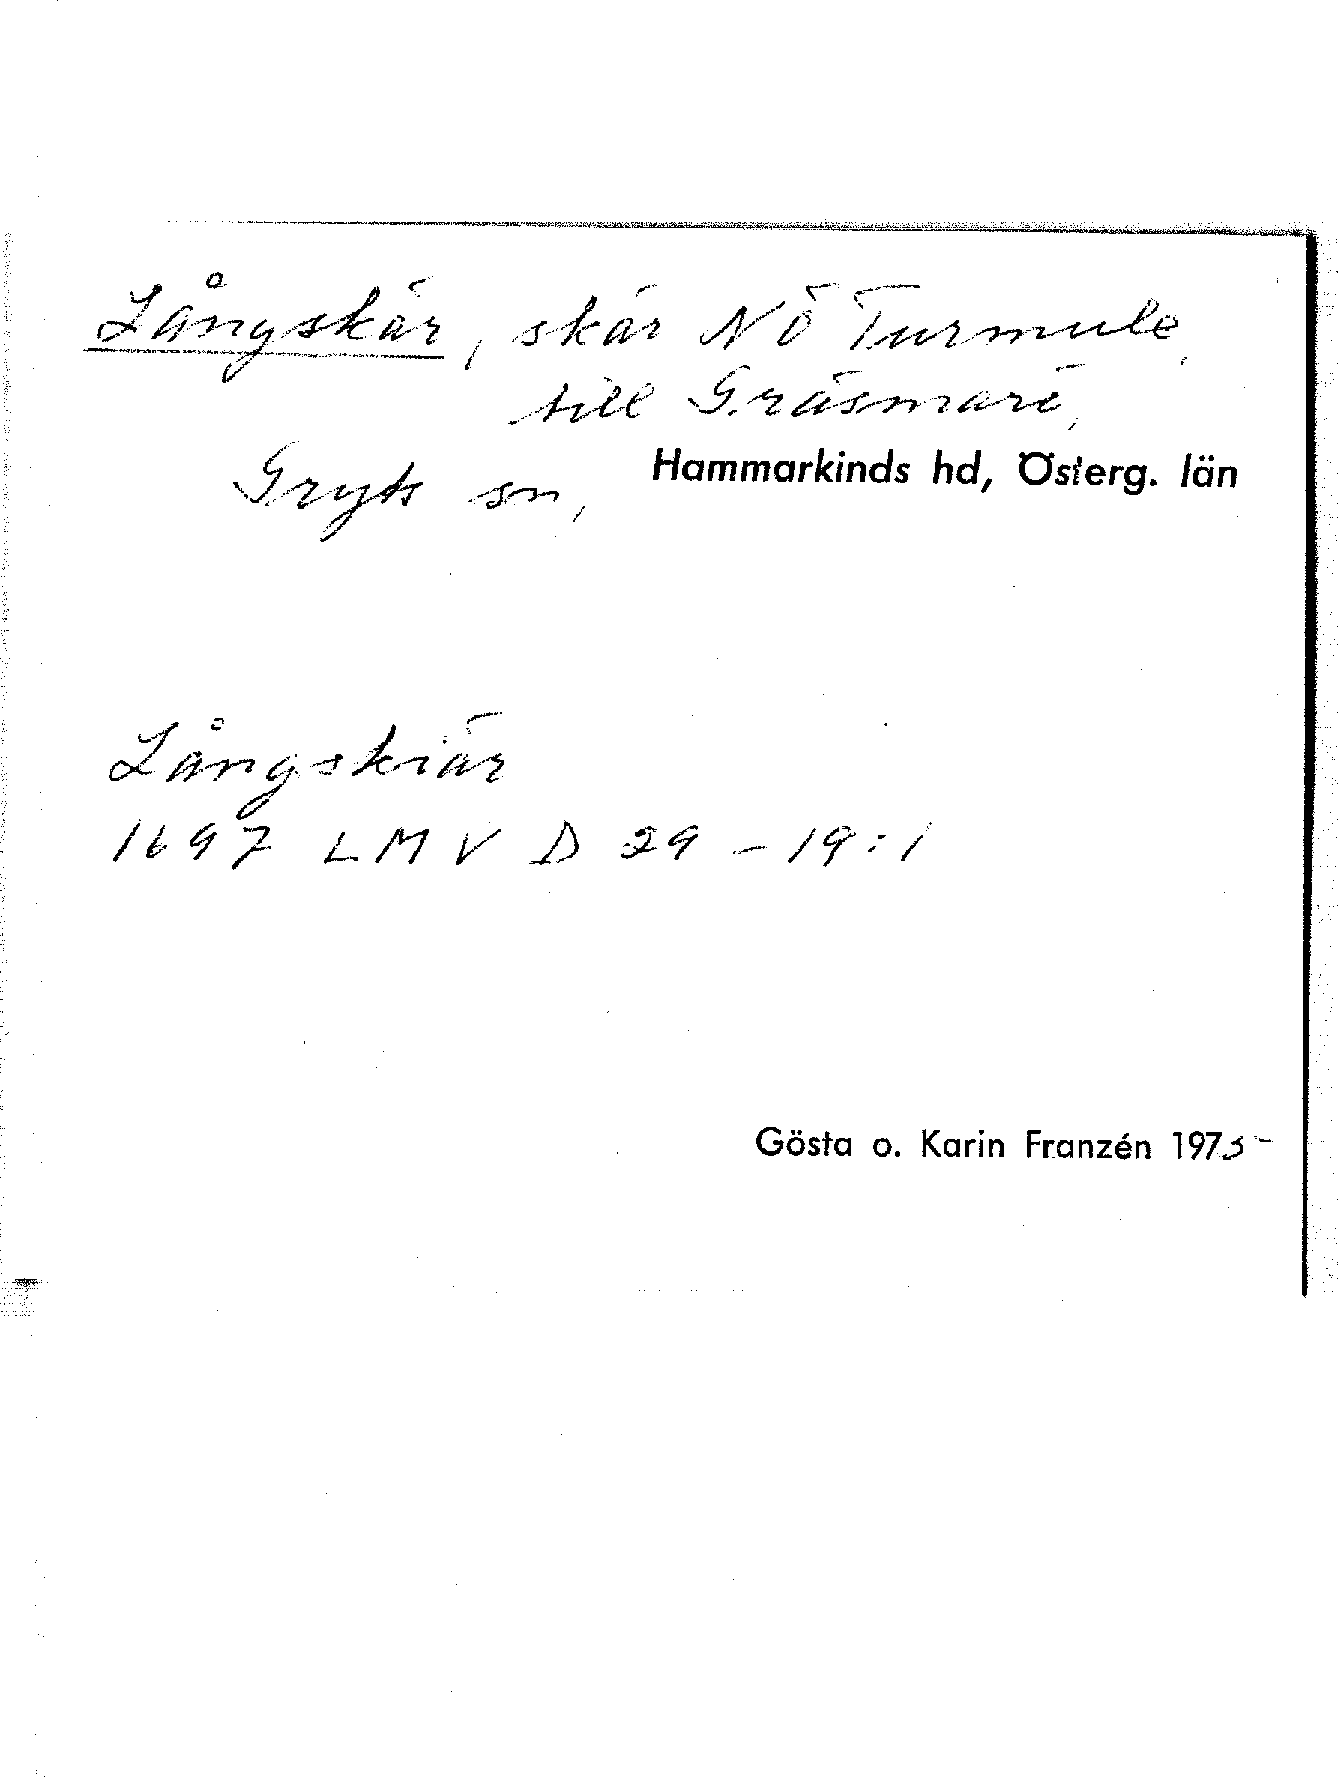 Långskär, skär NÖ Turmule,
till Gräsmarö,
Gryts sn, Hammarkinds hd, Österg. län
Långskiär
1697 LMV D 29 - 19:1
Gösta o. Karin Franzén 1975